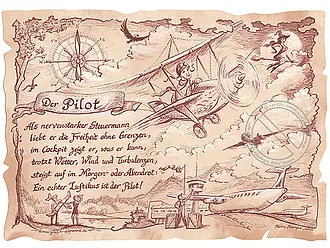 Der Pilot
Als nervenstarker Steuermann
liebt er die Freiheit ohne Grenzen,
im Cockpit zeigt er, was er kann,
trotzt Wetter, Wind und Turbulenzen,
steigt auf im Morgen- oder Abendrot.
Ein echter Luftikus ist der Pilot!